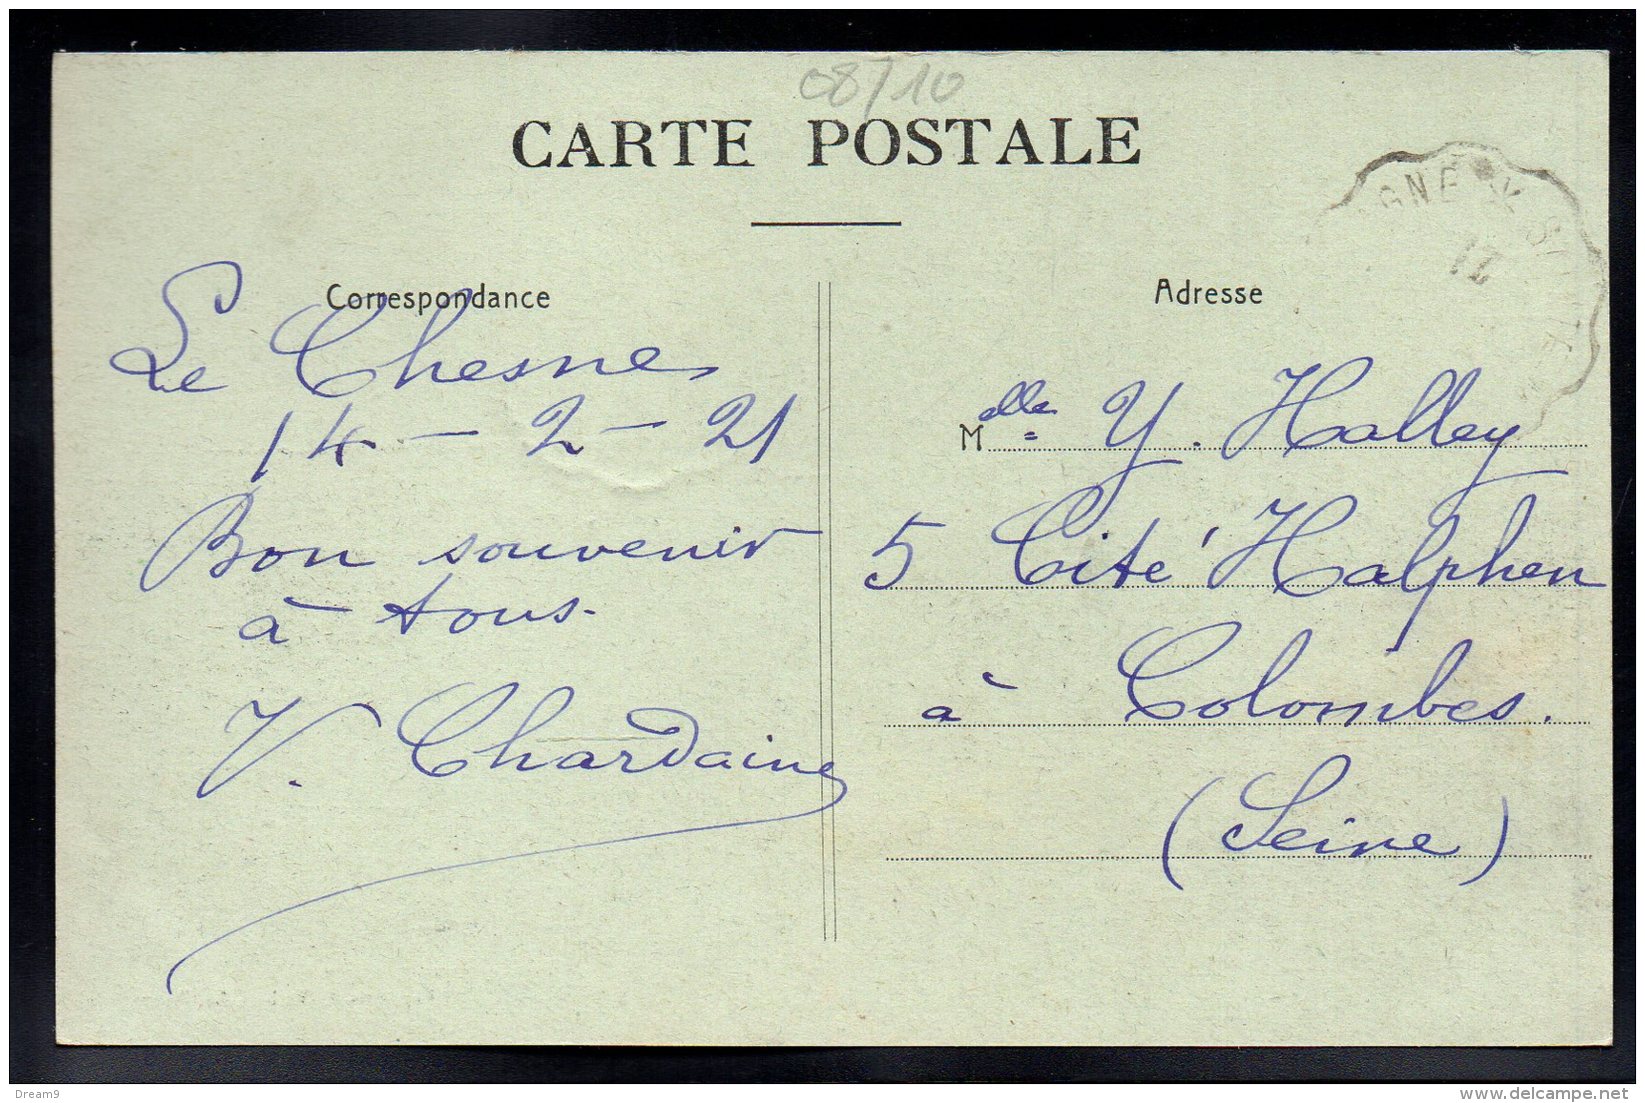 08/10
CARTE POSTALE
Correspondance
Le Chesne
14 - 2 - 21
Bon souvenir
à tous.
V. Chardaine
Adresse
Melle Y. Halley
5 Cité Halphen
à Colombes.
(Seine)
21
Dream9
www.delcampe.net